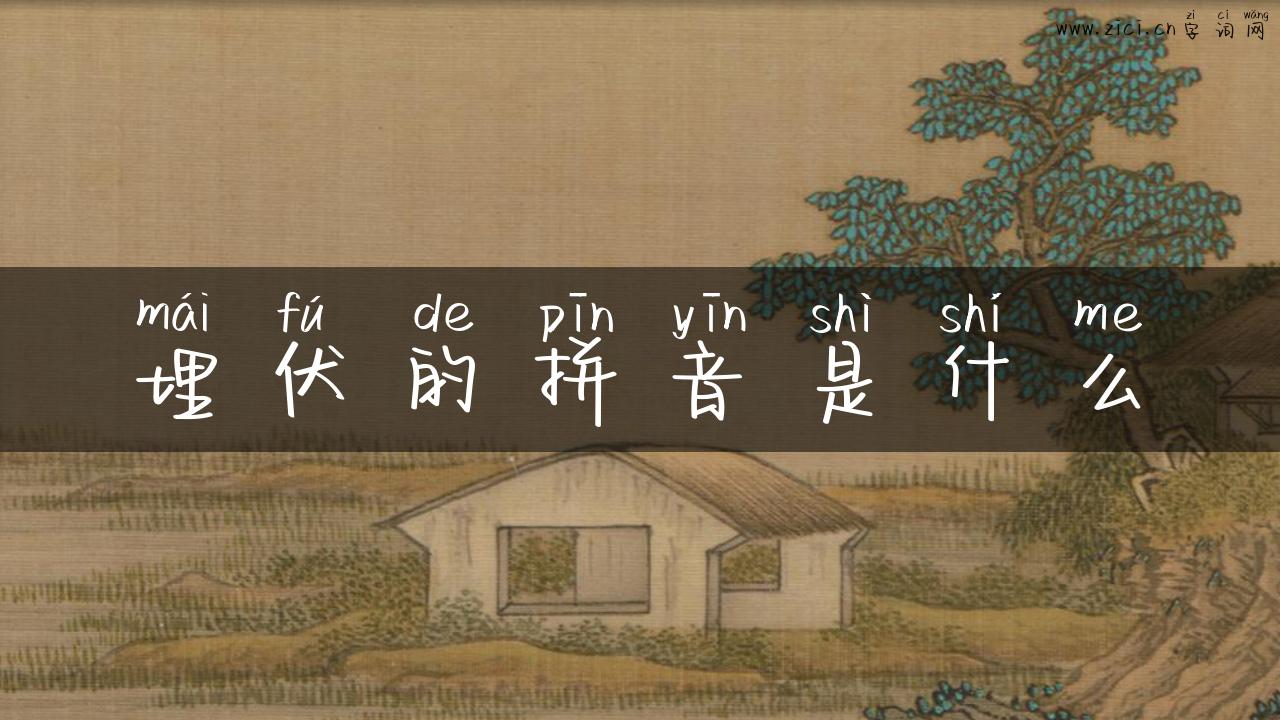 zì cí wǎng
www.zici.cn 字词网
mái fú de pīn yīn shì shí me
埋伏的拼音是什么